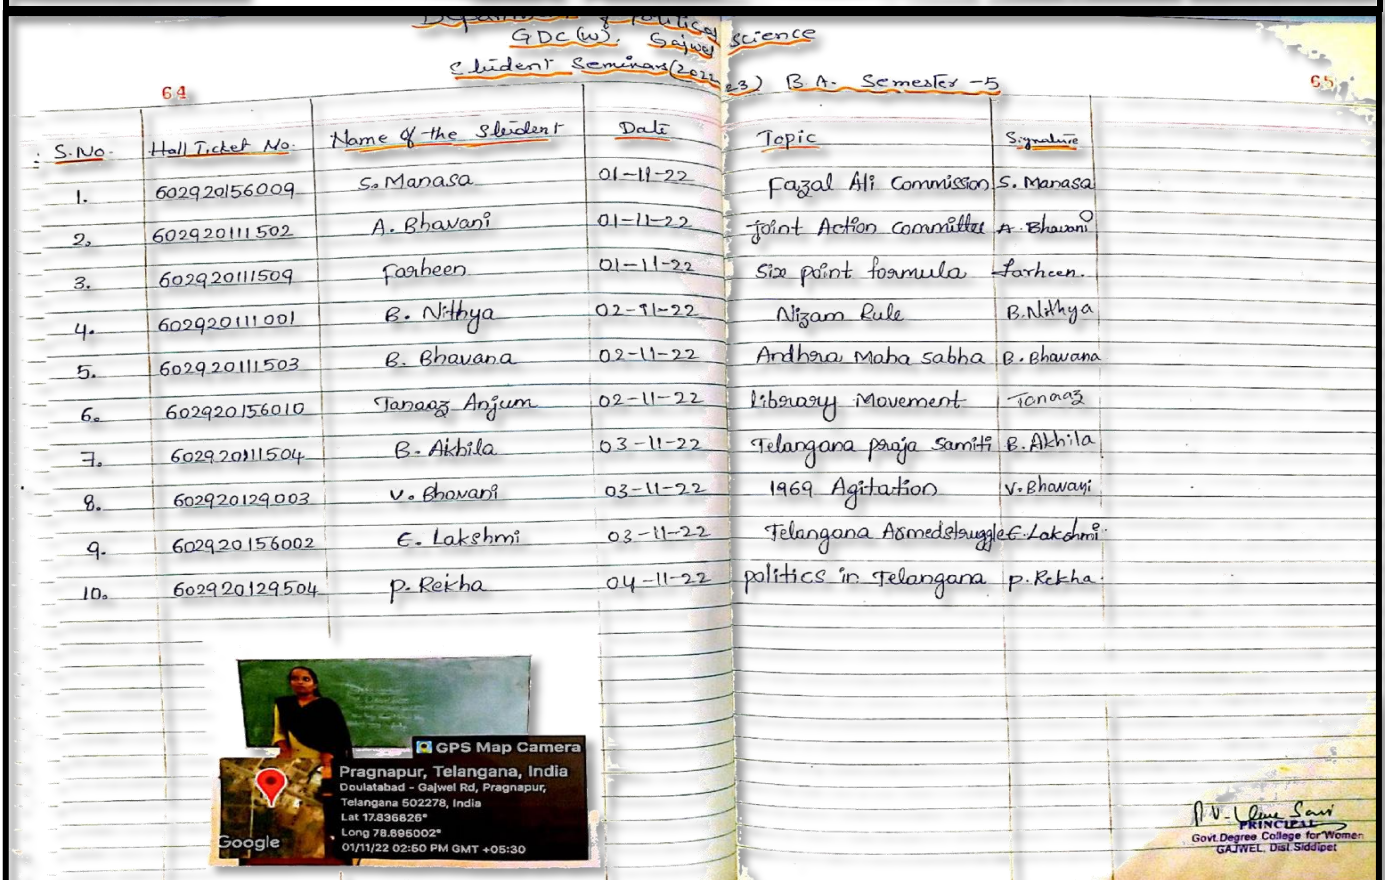 Department of Political Science
GDC(W). Gajwel
Student Seminars(2022-23) B.A. Semester-5
64 65
S.No. Hall Ticket No. Name of the Student Date Topic Signature
1. 602920156009 S. Manasa 01-11-22 Fazal Ali Commission S. Manasa
2. 602920111502 A. Bhavani 01-11-22 Joint Action Committee A. Bhavani
3. 602920111509 Farheen 01-11-22 Six point formula Farheen.
4. 602920111001 B. Nithya 02-11-22 Nizam Rule B.Nithya
5. 602920111503 B. Bhavana 02-11-22 Andhra Maha Sabha B. Bhavana
6. 602920156010 Tanaaz Anjum 02-11-22 Library Movement Tanaaz
7. 602920111504 B. Akhila 03-11-22 Telangana praja Samiti B. Akhila
8. 602920129003 V. Bhavani 03-11-22 1969 Agitation V. Bhavani
9. 602920156002 E. Lakshmi 03-11-22 Telangana Armedstruggle E. Lakshmi.
10. 602920129504 P. Rekha 04-11-22 politics in Telangana P. Rekha.
GPS Map Camera
Pragnapur, Telangana, India
Doulatabad - Gajwel Rd, Pragnapur,
Telangana 502278, India
Lat 17.836826°
Long 78.695002°
01/11/22 02:50 PM GMT +05:30
Google
PRINCIPAL
Govt.Degree College for Women
GAJWEL, Dist.Siddipet